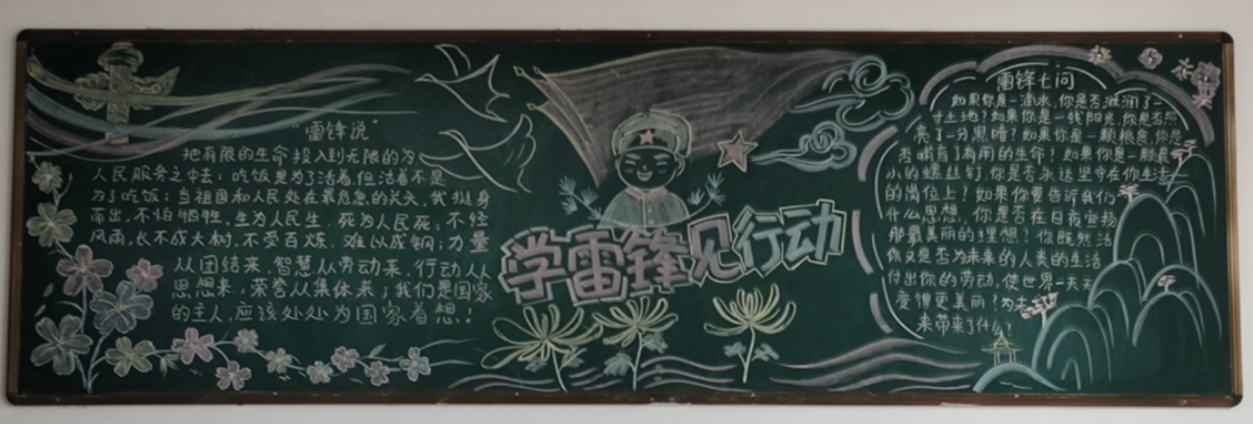 “雷锋说”
把有限的生命投入到无限的为
人民服务之中去；吃饭是为了活着，但活着不是
为了吃饭；当祖国和人民处在最危急的关头，我挺身
而出，不怕牺牲，生为人民生，死为人民死；不经
风雨，长不成大树，不受百炼，难以成钢；力量
从团结来，智慧从劳动来，行动从
思想来，荣誉从集体来；我们是国家
的主人，应该处处为国家着想！
学雷锋见行动
雷锋七问
如果你是一滴水，你是否滋润了一
寸土地？如果你是一线阳光，你是否照
亮了一分黑暗？如果你是一颗粮食，你是
否哺育了有用的生命？如果你是一颗最
小的螺丝钉，你是否永远坚守在你生活
的岗位上？如果你要告诉我们
什么思想，你是否在日夜宣扬
那最美丽的理想？你既然活
你又是否为未来的人类的生活
付出你的劳动，使世界一天天
变得更美丽？为未
来带来了什么？